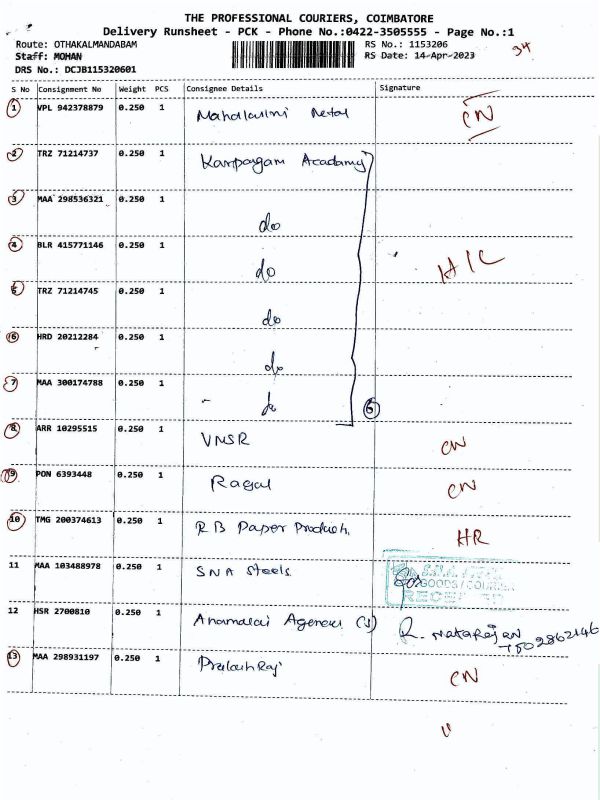 THE PROFESSIONAL COURIERS, COIMBATORE
Delivery Runsheet - PCK - Phone No.:0422-3505555 - Page No.:1
Route: OTHAKALMANDABAM RS No.: 1153206
Staff: MOHAN RS Date: 14-Apr-2023
DRS No.: DCJB115320601
S No Consignment No Weight PCS Consignee Details Signature
1 VPL 942378879 0.250 1 Mahalaxmi CN
2 TRZ 71214737 0.250 1 Karpagam Acadamy
3 MAA 298536321 0.250 1 do
4 BLR 415771146 0.250 1 do H/C
5 TRZ 71214745 0.250 1 do
6 HRD 20212284 0.250 1 do
7 MAA 300174788 0.250 1 do 6
8 ARR 10295515 0.250 1 VNSR CN
9 PON 6393448 0.250 1 Ragal CN
10 TMG 200374613 0.250 1 RB Paper Products HR
11 MAA 103488978 0.250 1 SNA Steels GOODS / COURIER
12 HSR 2700810 0.250 1 Anamalai Agencies (3) R. Natarajan
13 MAA 298931197 0.250 1 Prakash Raj CN